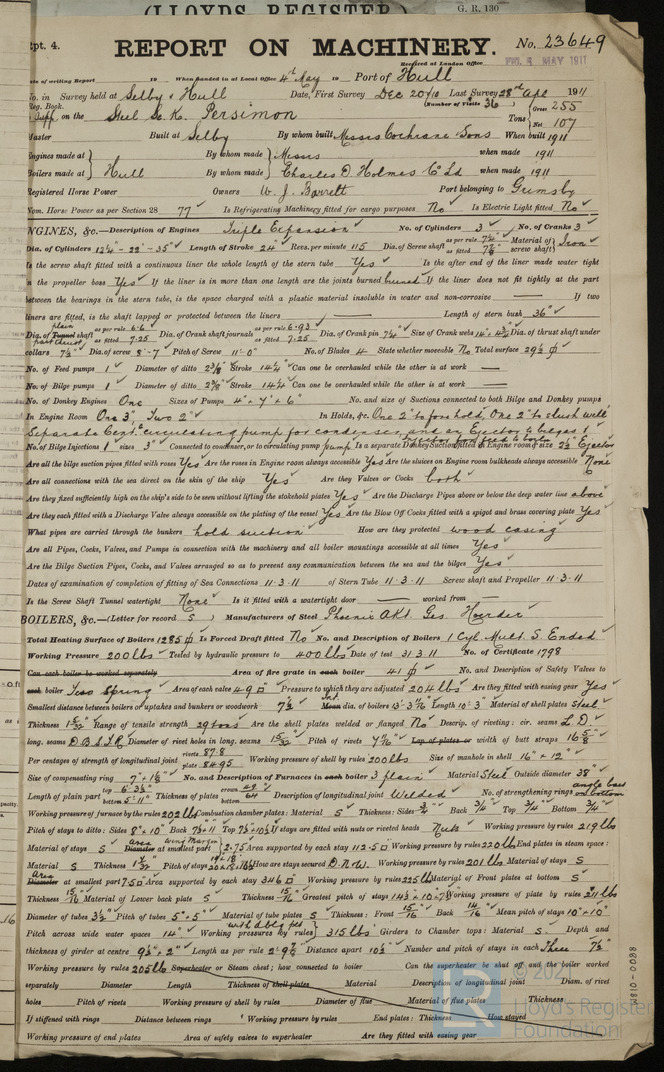 (LLOYDS REGISTER)
G. R. 130
Rpt. 4.
REPORT ON MACHINERY.
No. 23649
Received at London Office
MAY 1911
Date of writing Report 19 When handed in at Local Office 4th May 19 Port of Hull
No. in Survey held at Selby & Hull Date, First Survey Dec 20/10 Last Survey 28th Apl 1911
Reg. Book. (Number of Visits 36)
on the Steel Sc. K. Persimon Tons { Gross 255 Net 107
Master Built at Selby By whom built Messrs Cochrane & Sons When built 1911
Engines made at By whom made Messrs when made 1911
Boilers made at Hull By whom made Charles D. Holmes & Co Ld when made 1911
Registered Horse Power Owners W. J. Barrett Port belonging to Grimsby
Nom. Horse Power as per Section 28 77 Is Refrigerating Machinery fitted for cargo purposes No Is Electric Light fitted No
ENGINES, &c.—Description of Engines Triple Expansion No. of Cylinders 3 No. of Cranks 3
Dia. of Cylinders 13¼" - 22" - 35" Length of Stroke 24" Revs. per minute 115 Dia. of Screw shaft as per rule as fitted Material of screw shaft Iron
Is the screw shaft fitted with a continuous liner the whole length of the stern tube Yes Is the after end of the liner made water tight
in the propeller boss Yes If the liner is in more than one length are the joints burned burned If the liner does not fit tightly at the part
between the bearings in the stern tube, is the space charged with a plastic material insoluble in water and non-corrosive — If two
liners are fitted, is the shaft lapped or protected between the liners — Length of stern bush 36"
Dia. of Tunnel shaft as per rule 6.6 as fitted 7.25 Dia. of Crank shaft journals as per rule 6.93 as fitted 7.25 Dia. of Crank pin 7¼" Size of Crank webs 14" × 4¾" Dia. of thrust shaft under
collars 7½" Dia. of screw 8'-7" Pitch of Screw 11'-0" No. of Blades 4 State whether moveable No Total surface 29½
No. of Feed pumps 1 Diameter of ditto 2⅜" Stroke 14¼ Can one be overhauled while the other is at work —
No. of Bilge pumps 1 Diameter of ditto 2⅜" Stroke 14¼ Can one be overhauled while the other is at work —
No. of Donkey Engines One Sizes of Pumps 4" × 7" × 6" No. and size of Suctions connected to both Bilge and Donkey pumps
In Engine Room One 3", Two 2" In Holds, &c. One 2" to fore hold, One 2" to slush well
Separate Cent. circulating pump for condenser, and an Ejector to bilges
No. of Bilge Injections 1 sizes 3" Connected to condenser, or to circulating pump pump Is a separate Donkey Suction fitted in Engine room & size 2½" Ejector
Are all the bilge suction pipes fitted with roses Yes Are the roses in Engine room always accessible Yes Are the sluices on Engine room bulkheads always accessible None
Are all connections with the sea direct on the skin of the ship Yes Are they Valves or Cocks both
Are they fixed sufficiently high on the ship's side to be seen without lifting the stokehold plates Yes Are the Discharge Pipes above or below the deep water line above
Are they each fitted with a Discharge Valve always accessible on the plating of the vessel Yes Are the Blow Off Cocks fitted with a spigot and brass covering plate Yes
What pipes are carried through the bunkers hold suction How are they protected wood casing
Are all Pipes, Cocks, Valves, and Pumps in connection with the machinery and all boiler mountings accessible at all times Yes
Are the Bilge Suction Pipes, Cocks, and Valves arranged so as to prevent any communication between the sea and the bilges Yes
Dates of examination of completion of fitting of Sea Connections 11.3.11 of Stern Tube 11.3.11 Screw shaft and Propeller 11.3.11
Is the Screw Shaft Tunnel watertight None Is it fitted with a watertight door — worked from —
BOILERS, &c.—(Letter for record S) Manufacturers of Steel Phoenix Akt. Ges. Hoerder
Total Heating Surface of Boilers 1285 Is Forced Draft fitted No No. and Description of Boilers 1 Cyl. Mult. S. Ended
Working Pressure 200 lbs Tested by hydraulic pressure to 400 lbs Date of test 31.3.11 No. of Certificate 1798
Can each boiler be worked separately Area of fire grate in each boiler 41 No. and Description of Safety Valves to
each boiler Two Spring Area of each valve 4.90 Pressure to which they are adjusted 204 lbs Are they fitted with easing gear Yes
Smallest distance between boilers or uptakes and bunkers or woodwork 7½ Mean dia. of boilers Length 10'-3" Material of shell plates Steel
Thickness Range of tensile strength 29 tons Are the shell plates welded or flanged No Descrip. of riveting: cir. seams L. D.
long. seams D.B.S.T.R. Diameter of rivet holes in long. seams Pitch of rivets Lap of plates or width of butt straps 16⅝
Per centages of strength of longitudinal joint rivets 87.8 plate 84.95 Working pressure of shell by rules 200 lbs Size of manhole in shell 16" × 12"
Size of compensating ring No. and Description of Furnaces in each boiler 3 plain Material Steel Outside diameter 38"
Length of plain part top 6'-3½" bottom 5'-11" Thickness of plates crown bottom Description of longitudinal joint Welded No. of strengthening rings
Working pressure of furnace by the rules 202 lbs Combustion chamber plates: Material S Thickness: Sides ¾ Back ¾ Top ¾ Bottom ¾
Pitch of stays to ditto: Sides 8" × 10" Back Top If stays are fitted with nuts or riveted heads Nuts Working pressure by rules 219 lbs
Material of stays S Diameter at smallest part 2.75 Area supported by each stay 112.5 Working pressure by rules 220 lbs End plates in steam space:
Material S Thickness Pitch of stays How are stays secured D.N.W. Working pressure by rules 201 lbs Material of stays S
Diameter at smallest part 7.50 Area supported by each stay 346 Working pressure by rules 225 lbs Material of Front plates at bottom S
Thickness 15/16 Material of Lower back plate S Thickness 15/16 Greatest pitch of stays Working pressure of plate by rules 211 lbs
Diameter of tubes 3½ Pitch of tubes 5" × 5" Material of tube plates S Thickness: Front 15/16 Back 14/16 Mean pitch of stays 10" × 10"
Pitch across wide water spaces 14" Working pressures by rules 315 lbs Girders to Chamber tops: Material S Depth and
thickness of girder at centre 9½ × 2" Length as per rule Distance apart 10½ Number and pitch of stays in each Three 7½"
Working pressure by rules 205 lbs Superheater or Steam chest; how connected to boiler Can the superheater be shut off and the boiler worked
separately Diameter Length Thickness of shell plates Material Description of longitudinal joint Diam. of rivet
holes Pitch of rivets Working pressure of shell by rules Diameter of flue Material of flue plates Thickness
If stiffened with rings Distance between rings Working pressure by rules End plates: Thickness How stayed
Working pressure of end plates Area of safety valves to superheater Are they fitted with easing gear
© 2021
Lloyd's Register
Foundation